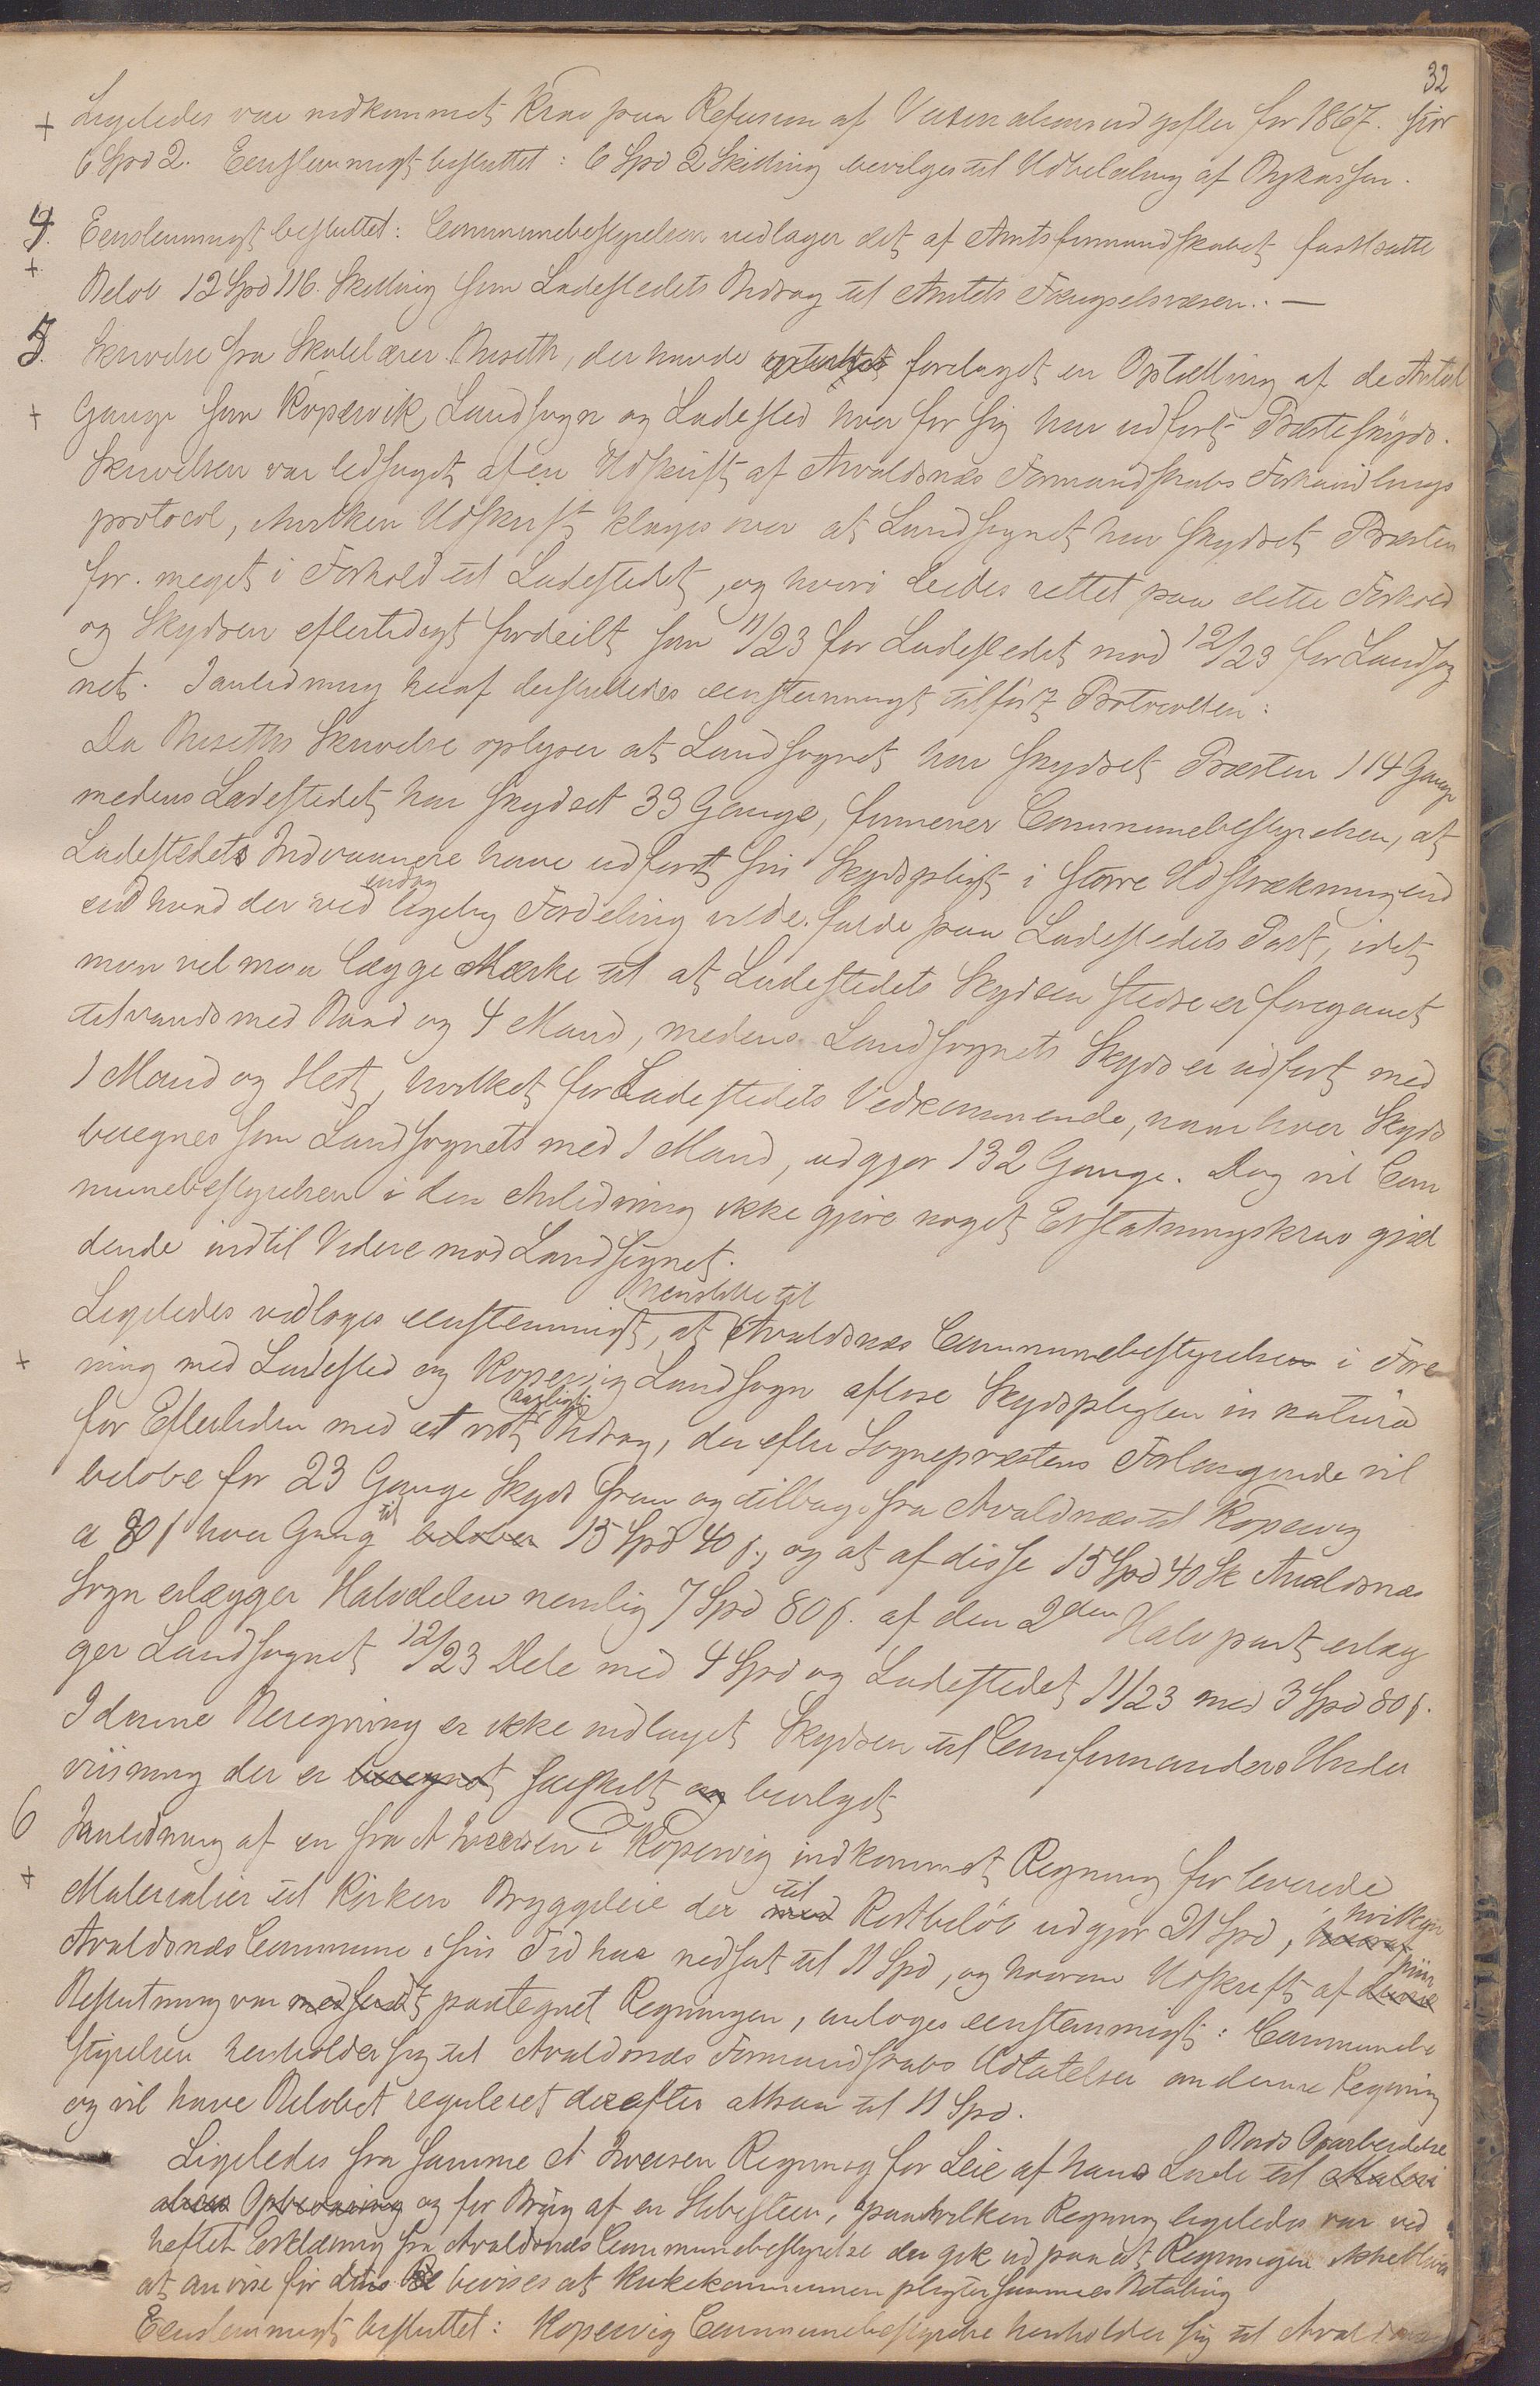 32
+ Ligeledes var indkommet Krav paa Refusion af Vaccinationsudgifter for 1867. stor
6 Spd 2. Eenstemmigt besluttet: 6 Spd 2 Skilling bevilges til Udbetaling af Bykassen.
4. Eenstemmigt besluttet: Communebestyrelsen vedtager det af Amtsformandskabet fastsatte
+ Beløb 12 Spd 116. Skilling som Ladestedets Bidrag til Amtets Fængselsvæsen. . —
5. Skrivelse fra Skolelærer Miseth, der havde foretaget en Optælling af de Antal
+ Gange som Kopervik Landsogn og Ladested hver for sig har udført Præsteskyds.
Skrivelsen var ledsaget af en Udskrift af Avaldsnæs Formandskabs Forhandlings
protocol, i hvilken Udskrift klages over at Landsognet har skydset Præsten
for meget i Forhold til Ladestedet, og hvori bedes rettet paa dette Forhold
og Skydsen eftertidigt fordeilt som 11/23 for Ladestedet mod 12/23 for Landsog
net. I anledning heraf besluttedes eenstemmigt tilført Protocollen:
Da Miseths Skrivelse oplyser at Landsognet har skydset Præsten 114 Gange
medens Ladestedet har skydset 33 Gange, formener Communebestyrelsen, at
Ladestedets Indvaanere have udført sin Skydspligt i større Udstrækning end
end hvad der ved endog ligelig Fordeling vilde falde paa Ladestedets Part, idet
man vel maa lægge Mærke til at Ladestedets Skydsen stedse er foregaaet
tilvands med Baad og 4 Mand, medens Landsognets Skyds er udført med
1 Mand og Hest, hvilket for Ladestedets Vedkommende, naar hver Skyds
beregnes som Landsognets med 1 Mand, udgjør 132 Gange. Dog vil Com
munebestyrelsen i den Anledning ikke gjøre noget Erstatningskrav gjæl
dende indtil Videre mod Landsognet.
Ligeledes vedtoges eenstemmigt, at henstille til Avaldsnæs Communebestyrelsen i Fore
+ ning med Ladested og Kopervig Landsogn afløse Skydspligten in natura
for Eftertiden med et vist aarligt Bidrag, der efter Sognepræstens Forlangende vil
beløbe for 23 Gange Skyds frem og tilbage fra Avaldsnæs til Kopervig
a 80 s hver Gang til beløber 15 Spd 40 s., og at af disse 15 Spd 40 Sk Avaldsnæs
Sogn erlægger Halvdelen nemlig 7 Spd 80 s. af den 2den Halvpart erlæg
ger Landsognet 12/23 Dele med 4 Spd og Ladestedet 11/23 med 3 Spd 80 s.
I denne Beregning er ikke indtaget Skydsen til Confirmanders Under
viisning der er beregnet særskilt og bevilget
6 I anledning af en fra A Iversen i Kopervig indkommet Regning for leverede
+ Materialier til Kirken Bryggeleie der til med Restbeløb udgjør 21 Spd, hvilken
Avaldsnæs Commune i sin Tid har nedsat til 11 Spd, og hvorom Udskrift af sin denne
Beslutning var medsendt paategnet Regningen, antoges eenstemmigt: Communebe
styrelsen henholder sig til Avaldsnæs Formandskabs Udtalelser om denne Regning
og vil have Beløbet reguleret derefter altsaa til 11 Spd.
Ligeledes fra samme A Iversen Regning for Leie af hans Lade til Bords Oparbeidelse Materi
aliers Opbevaring og for Brug af en Slibesteen, paa hvilken Regning ligeledes var ved
heftet Erklæring fra Avaldsnæs Communebestyrelse der gik ud paa at Regningen ikke blive
at anvise før det bevises at Kirkekommunen pligter sammes Betaling
Eenstemmigt besluttet: Kopervig Communebestyrelse henholder sig til Avaldsnæs